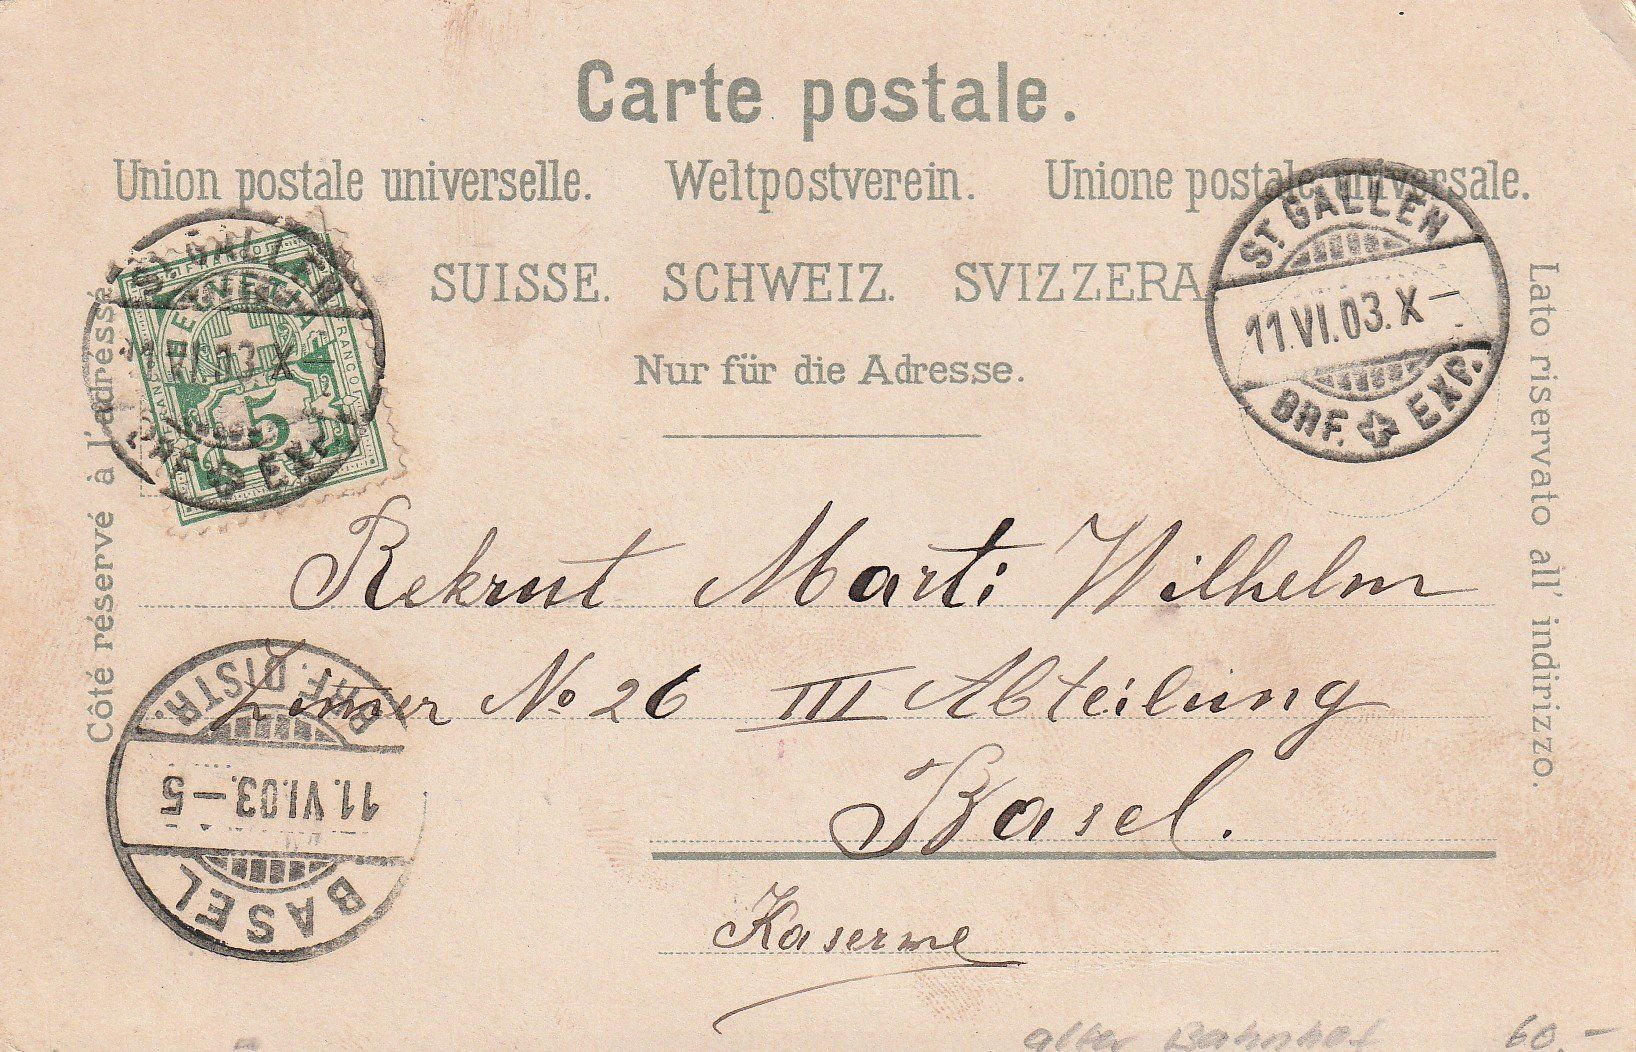 Carte postale.
Union postale universelle. Weltpostverein. Unione postale universale.
SUISSE. SCHWEIZ. SVIZZERA
Nur für die Adresse.
Côté réservé à l'adresse
Lato riservato all' indirizzo.
FRANCO
HELVETIA
FRANCO
FRANCO
5
ST. GALLEN
11.VI.03.X–
BRF. EXP.
ST. GALLEN
11.VI.03.X–
BRF. EXP.
Rekrut Marti Wilhelm
Zimer No 26 III Abteilung
Basel.
Kaserne
BASEL
11.VI.03.–5
BRF. DISTR.
alter Bahnhof 60.–